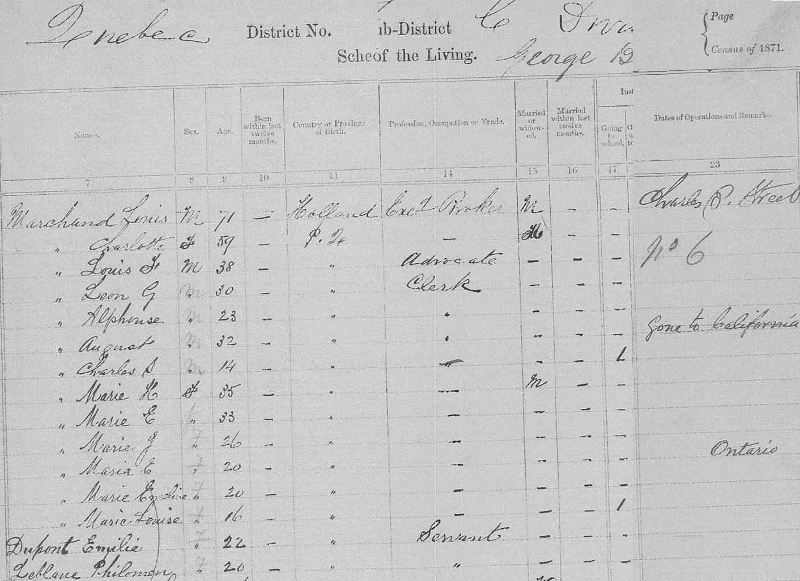 Quebec District No. ub-District C
Sche of the Living. George B
Page
Census of 1871.
Names. Sex. Age. Born within last twelve months. Country or Province of Birth. Profession, Occupation or Trade. Married or widow-ed. Married within last twelve months. Going to school. Dates of Operations and Remarks.
7 8 9 10 11 14 15 16 17 23
Marchand Louis M 71 – Holland Exc! Broker M – – Charles P. Street
„ Charlotte F 59 – P. Q. – M – – No 6
„ Louis F M 38 – „ Advocate – – –
„ Leon G „ 30 – „ Clerk – – –
„ Alphonse „ 23 – „ „ – – – Gone to California
„ August „ 32 – „ „ – – –
„ Charles S „ 14 – „ – – – 1
„ Marie H F 35 – „ – M – –
„ Marie E „ 33 – „ – – – –
„ Marie J „ 26 – „ – – – – Ontario
„ Maria E „ 20 – „ – – – –
„ Marie Emilie „ 20 – „ – – – –
„ Marie Louise „ 16 – „ – – – 1
Dupont Emilie „ 22 – „ Servant – – –
Leblanc Philomen „ 20 – „ „ – – –